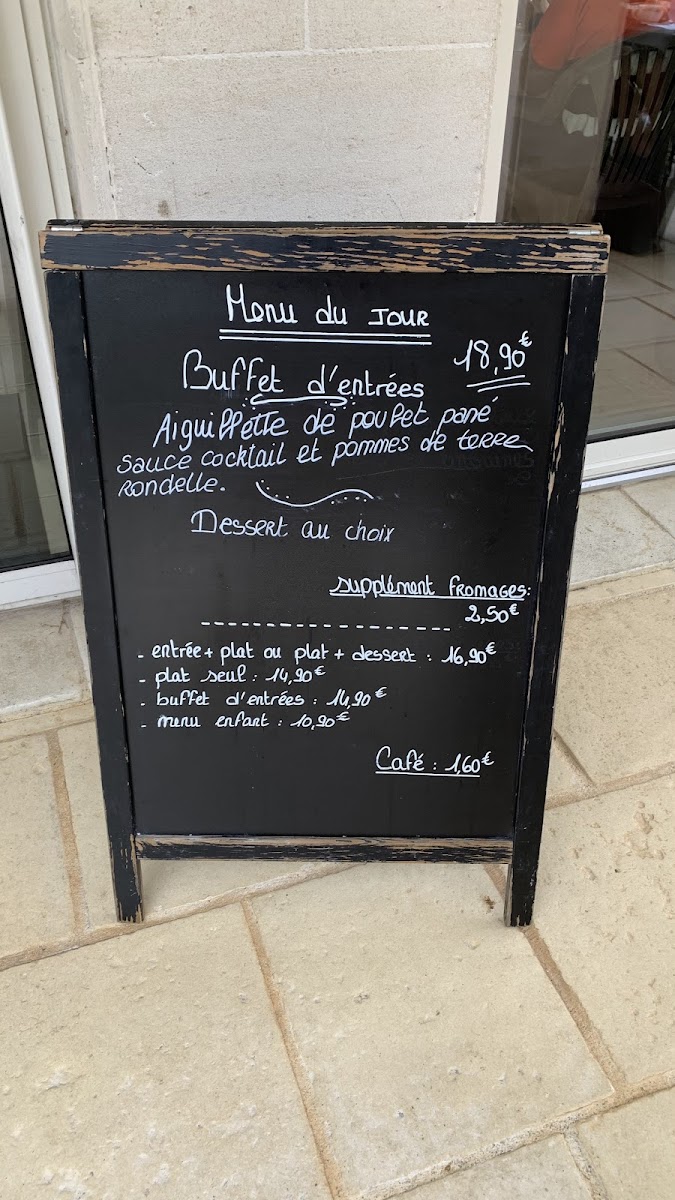 Menu du JOUR
18,90€
Buffet d'entrées
Aiguillette de poulet pané
sauce cocktail et pommes de terre
RONDELLE.
Dessert au choix
supplément fromages:
2,50€
- entrée + plat ou plat + dessert : 16,90€
- plat seul : 14,90€
- buffet d'entrées : 14,90€
- menu enfant : 10,90€
Café : 1,60€